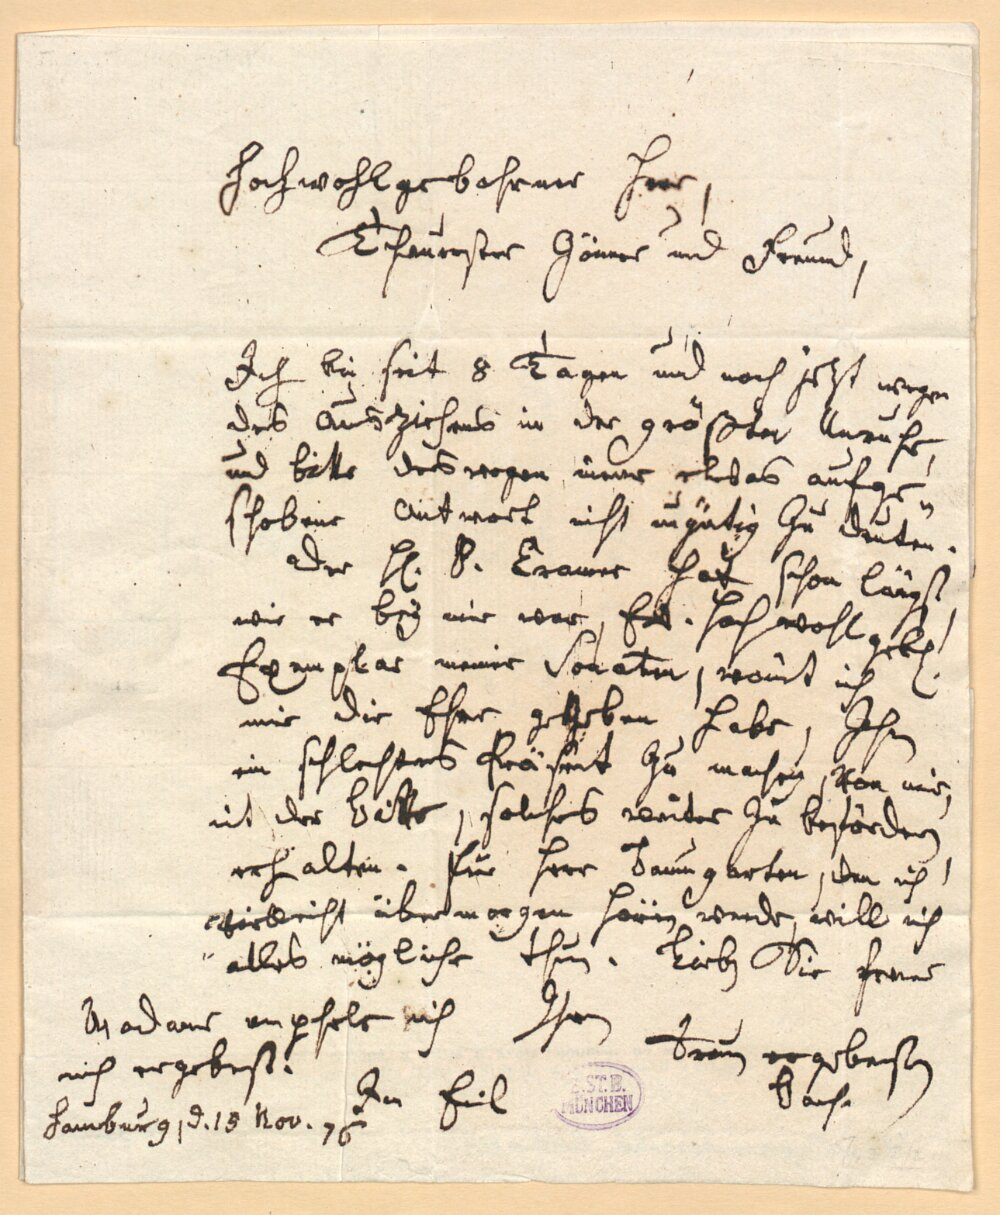 Hochwohlgebohrner Herr,
Theurester Gönner und Freund,
Ich bin seit 8 Tagen und noch jetzt wegen
des Ausziehens in der größten Unruhe,
und bitte deswegen meine etwas aufge„
schobene Antwort nicht ungütig zu deuten.
Der H. P. Cramer hat schon längst,
wie er bey mir war, Ew. Hochwohlgeb.
Exemplar meiner Sonaten, womit ich
mir die Ehre gegeben habe, Ihnen
ein schlechtes Präsent zu machen, von mir,
mit der Bitte, solches weiter zu befördern,
erhalten. Für Herr Baumgarten, den ich
vielleicht übermorgen hören werde, will ich
alles mögliche thun. Lieben Sie ferner
Madame empfele mich Ihren
mich ergebenst. Treu ergebensten
In Eil Bach.
Hamburg, d. 15 Nov. 76
B.ST.B.
MÜNCHEN